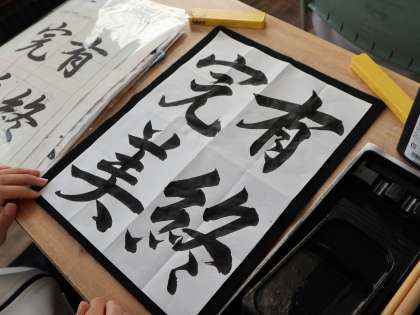 有終
完美
有終
完